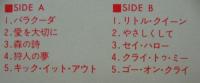 ■SIDE A
1. バラクーダ
2. 愛を大切に
3. 森の詩
4. 狩人の夢
5. キック・イット・アウト
■SIDE B
1. リトル・クイーン
2. やさしくして
3. セイ・ハロー
4. クライ・トゥ・ミー
5. ゴー・オン・クライ